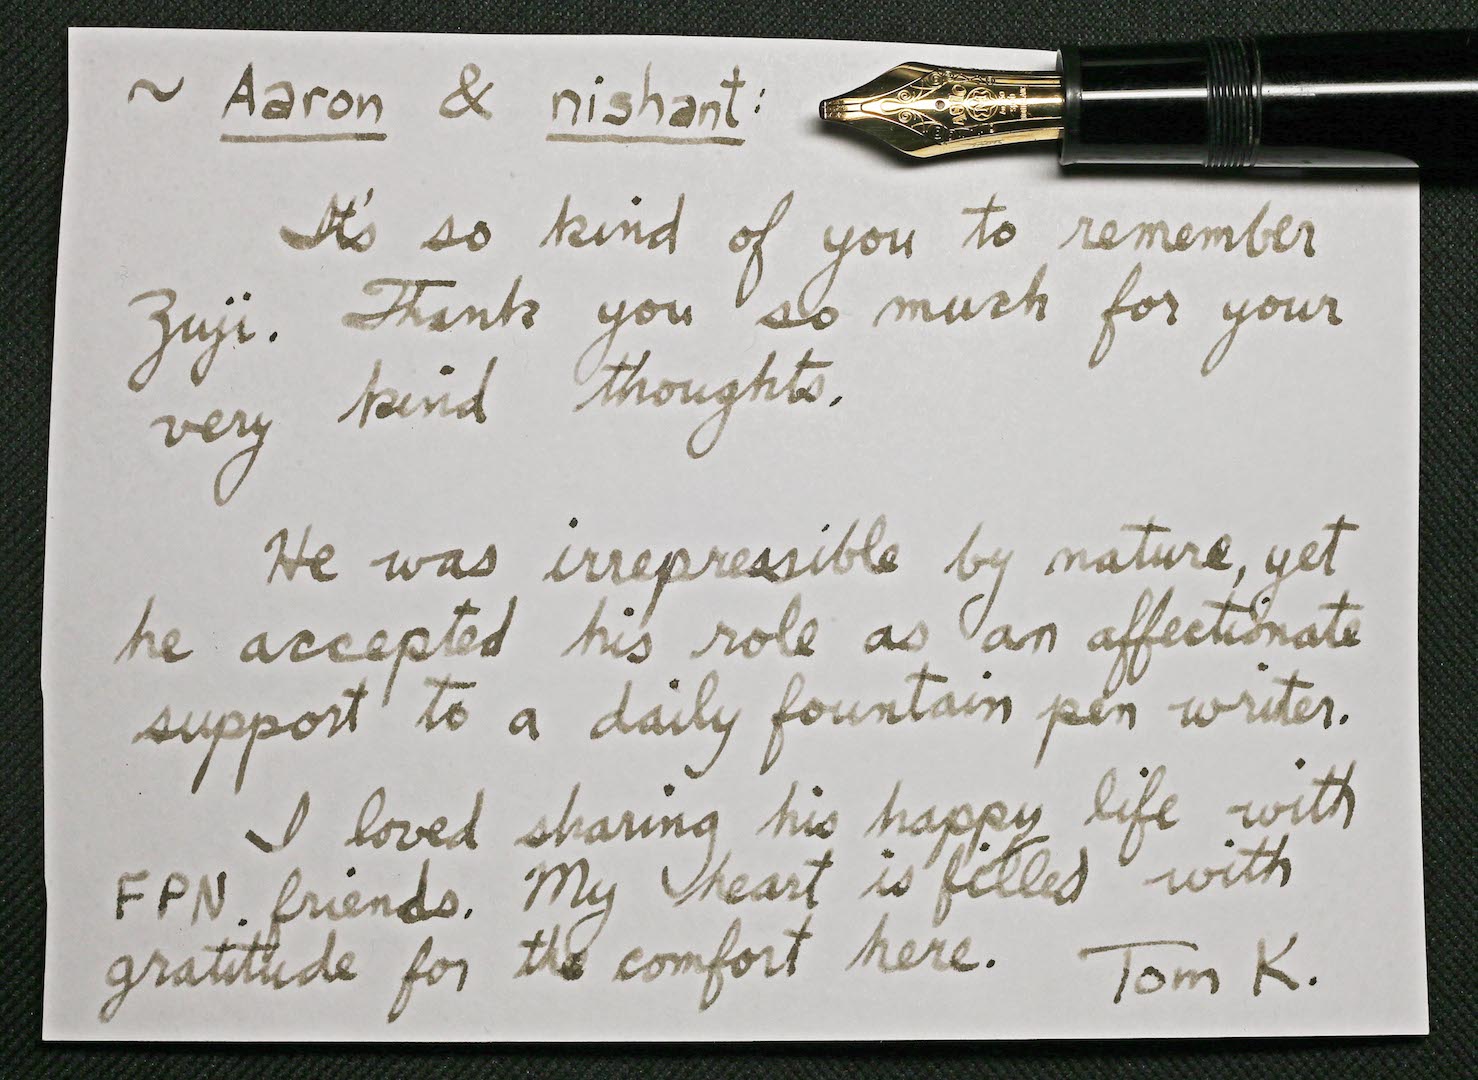 ~ Aaron & nishant:
It's so kind of you to remember
Zuji. Thank you so much for your
very kind thoughts.
He was irrepressible by nature, yet
he accepted his role as an affectionate
support to a daily fountain pen writer.
I loved sharing his happy life with
FPN friends. My heart is filled with
gratitude for the comfort here. Tom K.